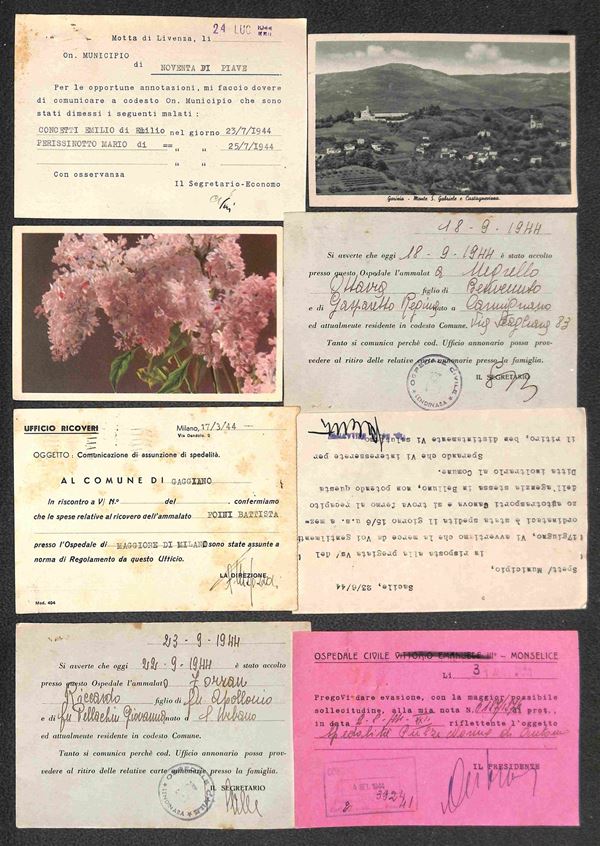 Motta di Livenza, li
24 LUG 1944
On. MUNICIPIO
di NOVENTA DI PIAVE
Per le opportune annotazioni, mi faccio dovere
di comunicare a codesto On. Municipio che sono
stati dimessi i seguenti malati:
CONCETTI EMILIO di Emilio nel giorno 23/7/1944
PERISSINOTTO MARIO di == „ „ 25/7/1944
Con osservanza
Il Segretario-Economo
Gorizia - Monte S. Gabriele e Castagnevizza
18-9-1944
Si avverte che oggi 18-9-1944 è stato accolto
presso questo Ospedale l'ammalat a Merello
Ottavia figlio di Benvenuto
e di Gasparetto Regina nato a Carmignano
ed attualmente residente in codesto Comune. Via 83
Tanto si comunica perchè cod. Ufficio annonario possa prov-
vedere al ritiro delle relative carte annonarie presso la famiglia.
IL SEGRETARIO
OSPEDALE CIVILE
LENDINARA
UFFICIO RICOVERI
Milano, 17/3/44
Via Dandolo, 2
OGGETTO: Comunicazione di assunzione di spedalità.
AL COMUNE DI GAGGIANO
In riscontro a Vi N.° del confermiamo
che le spese relative al ricovero dell'ammalato POINI BATTISTA
presso l'Ospedale di MAGGIORE DI MILANO sono state assunte a
norma di Regolamento da questo Ufficio.
LA DIREZIONE
Mod. 404
Sacile, 23/6/44
Spett/ Municipio,
In risposta alla pregiata del/Vs/
17giugno, Vi avvertiamo che la merce da Voi gentilmente
ordinataci è stata spedita il giorno 15/6 u.s. a mez-
zo autotrasporti Canova e si trova fermo al recapito
dell'agenzia stessa in Belluno, non potendo questa
Ditta inoltrarlo al Comune.
Sperando che Vi interesserete per
il ritiro, ben distintamente Vi
23-9-1944
Si avverte che oggi 22-9-1944 è stato accolto
presso questo Ospedale l'ammalat o Zorzan
Riccardo figlio di fu Apollonio
e di fu Giovanna nato a S. Urbano
ed attualmente residente in codesto Comune.
Tanto si comunica perchè cod. Ufficio annonario possa prov-
vedere al ritiro delle relative carte annonarie presso la famiglia.
IL SEGRETARIO
OSPEDALE CIVILE
LENDINARA
OSPEDALE CIVILE VITTORIO EMANUELE III° - MONSELICE
Li 3
Prego Vi dare evasione, con la maggior possibile
sollecitudine, alla mia nota N. prot.,
in data riflettente l'oggetto
Spedalità
IL PRESIDENTE
4 SET. 1944